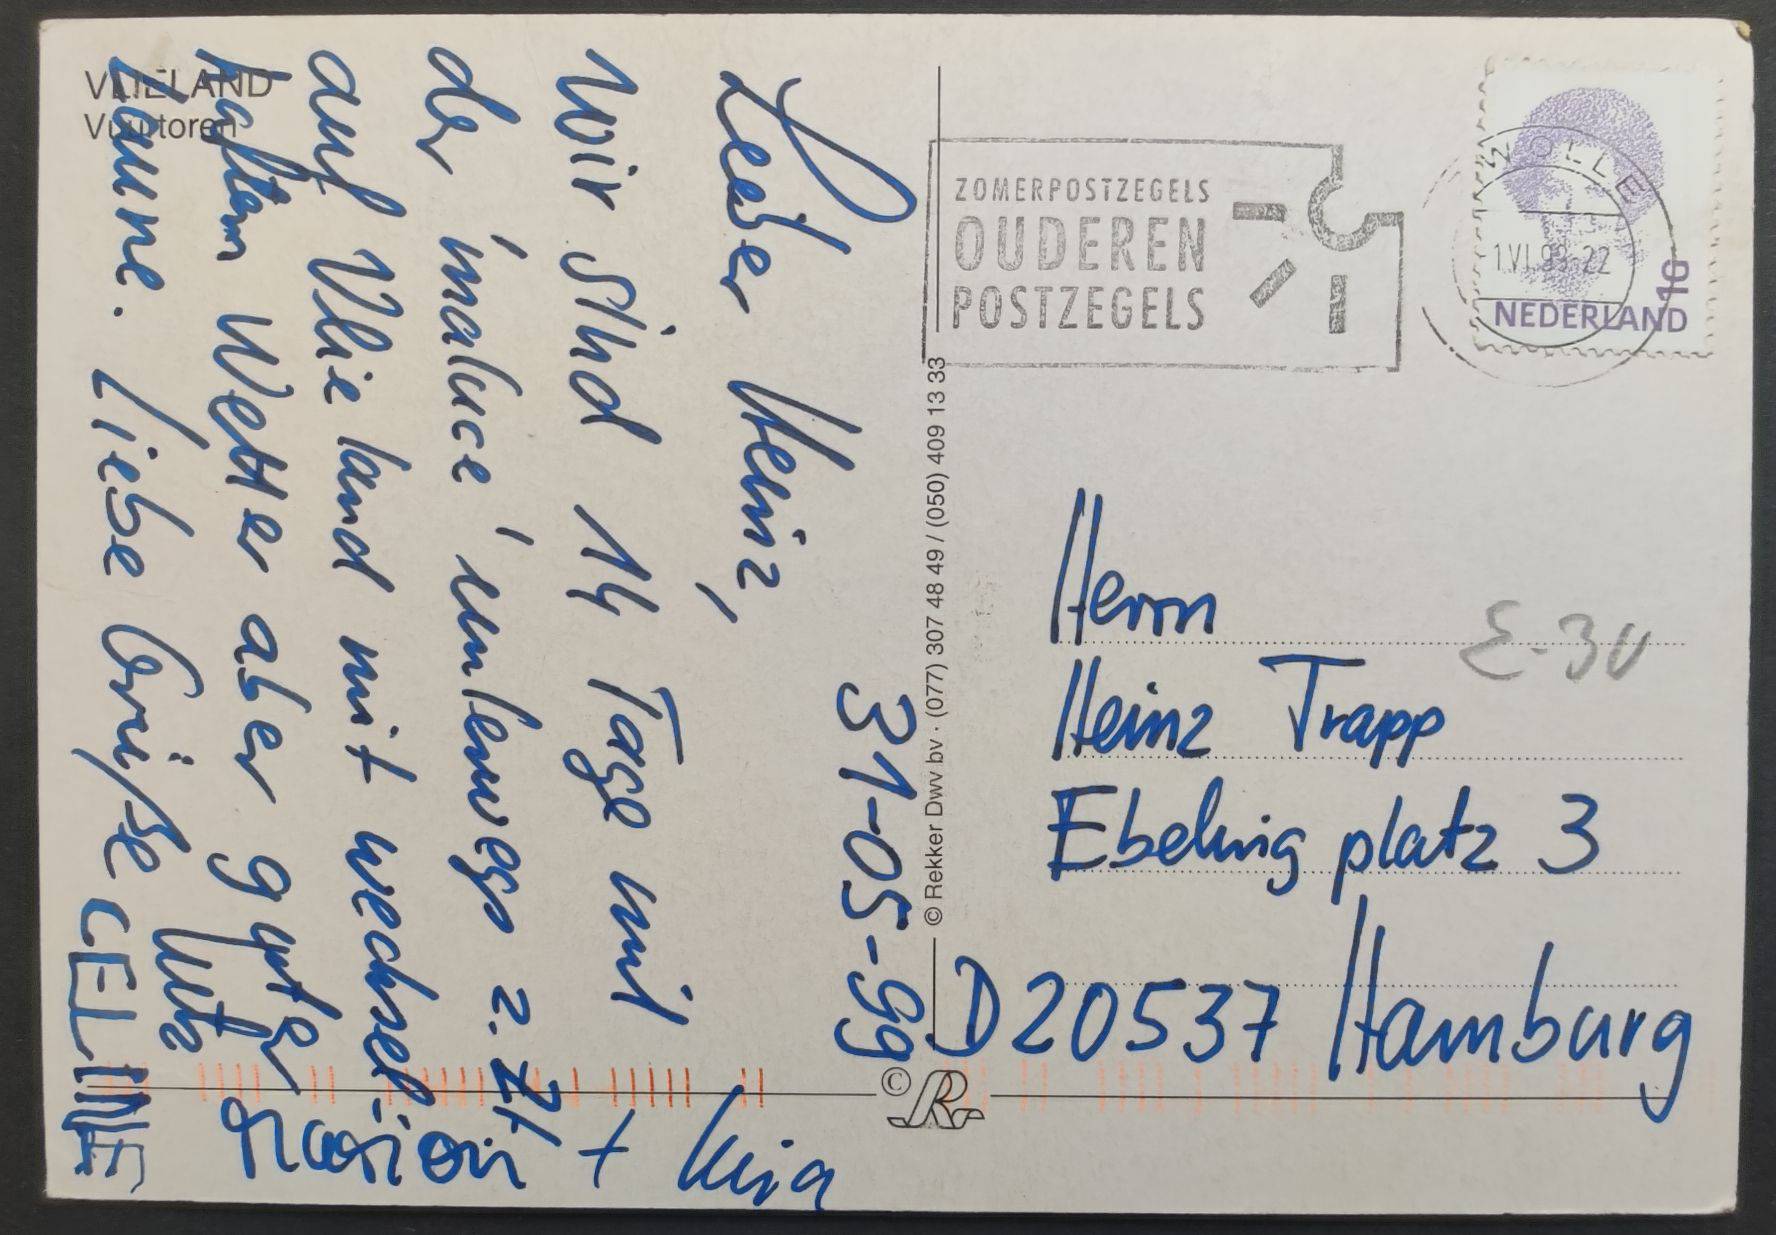 VLIELAND
Vuurtoren
31-05-99
Lieber Heinz,
Wir sind 14 Tage mit
der 'malue' unterwegs z. Zt
auf Vlieland mit wechsel-
haftem Wetter aber guter
Laune. Liebe Grüße
Marion + Nina
CELINE
© Rekker Dwv bv · (077) 307 48 49 / (050) 409 13 33
© R
ZOMERPOSTZEGELS
OUDEREN
POSTZEGELS
ZWOLLE
1.VI.99-22
NEDERLAND
Herrn
Heinz Trapp
Ebeling platz 3
D 20537 Hamburg